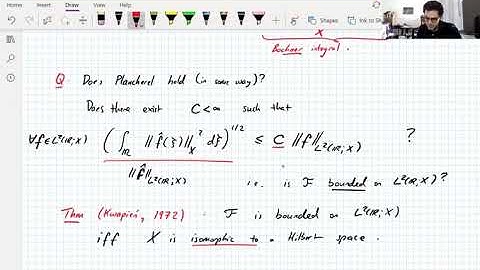 Home Insert Draw View
Shapes Ink to Sh
X
Bochner integral.
Q Does Plancherel hold (in some way)?
Does there exist C<∞ such that
∀f∈L²(ℝ;X) (∫_ℝ ‖f̂(ξ)‖_X² dξ)^{1/2} ≤ C ‖f‖_{L²(ℝ;X)} ?
‖f̂‖_{L²(ℝ;X)}
i.e. is F bounded on L²(ℝ;X)?
Thm (Kwapień, 1972) . F is bounded on L²(ℝ;X)
iff X is isomorphic to a Hilbert space.